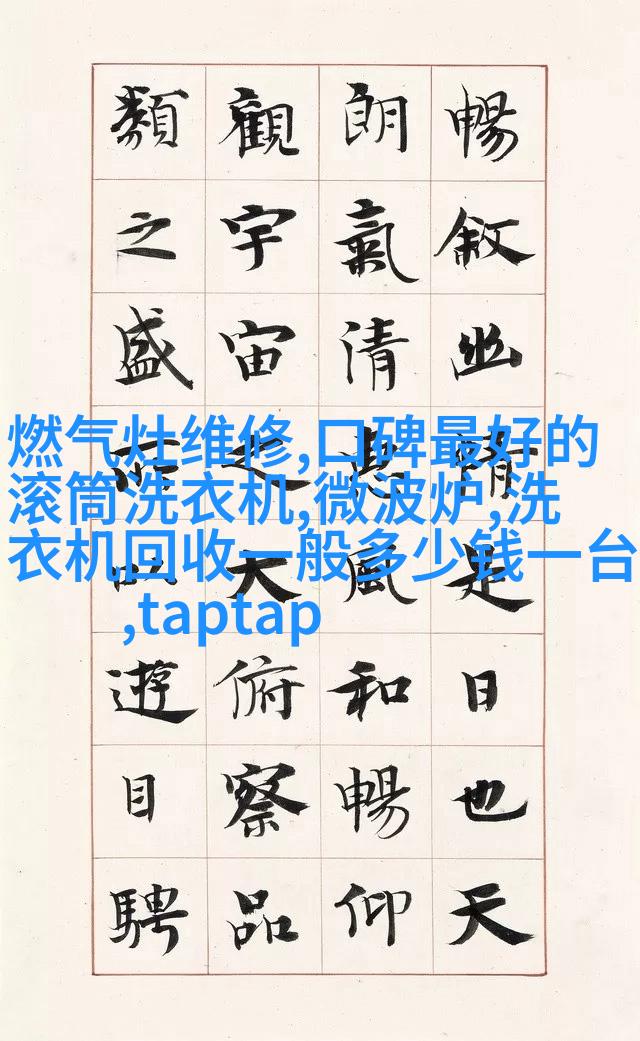 暢敘幽情是日也天
朗氣清惠風和暢仰
觀宇宙之大俯察品
類之盛所以遊目騁
燃气灶维修,口碑最好的
滚筒洗衣机,微波炉,洗
衣机回收一般多少钱一台
,taptap